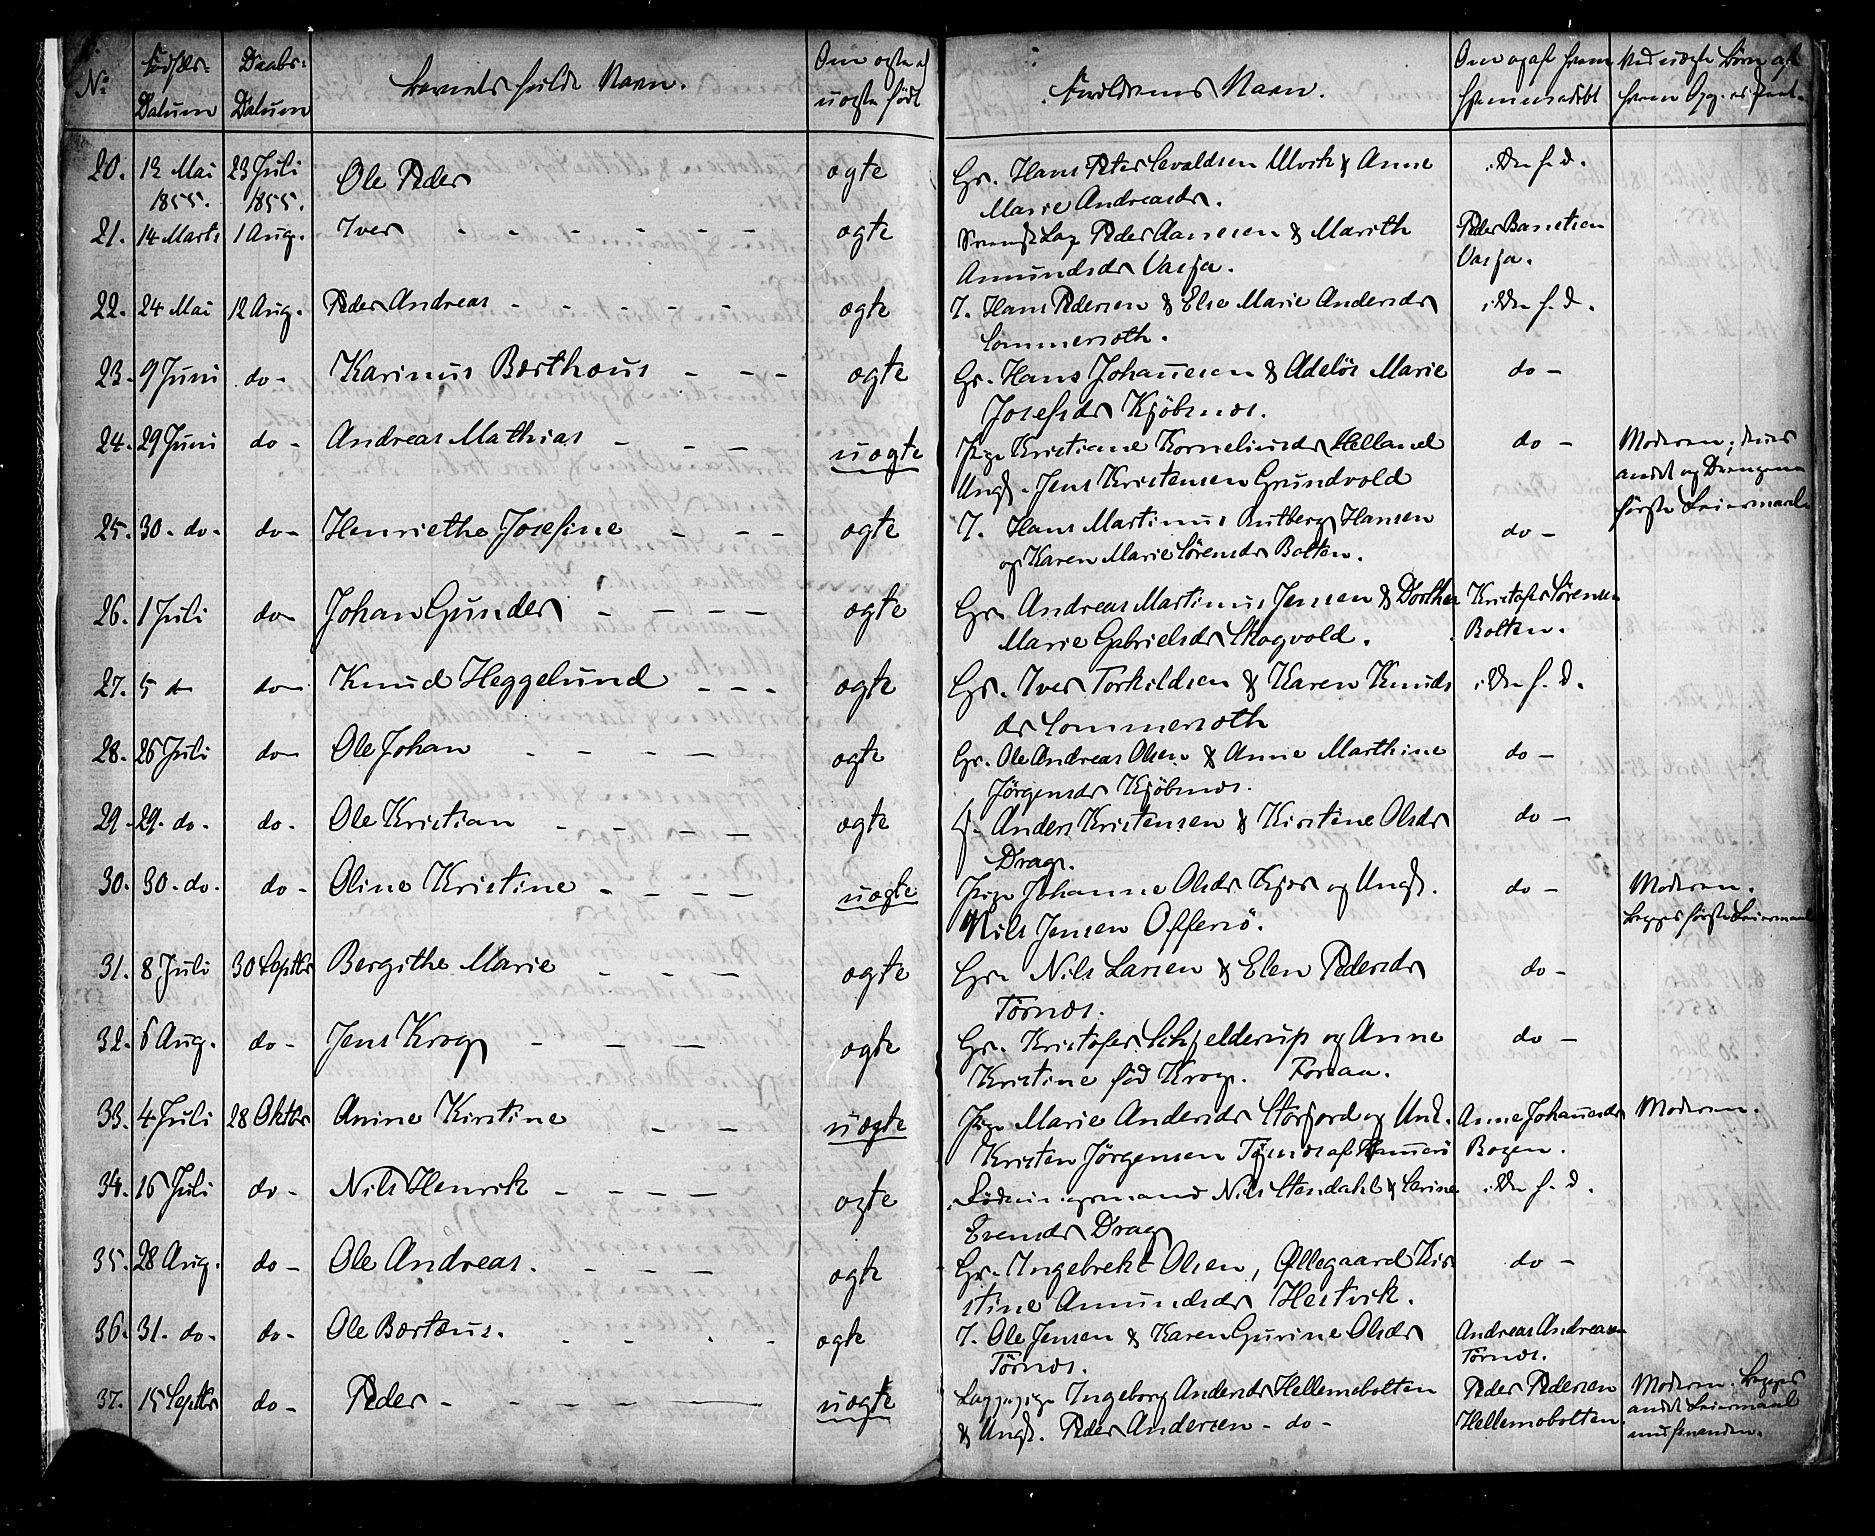 No Fødsels- Daabs- Barnets fulde Navn. Om ægte el Foreldrenes Navn. Om og af hvem Ved uægte Børn af
Datum Datum uægte født hjemmedøbt hvem Opg. er
20. 13 Mai 23 Juli Ole Peder ægte Gr. Hans Peter Sevaldsen Ulvik & Anne ikke h. d.
1855. 1855. Marie Andreasdr.
21. 14 Marts 1 Aug. Iver - - - - - - ægte Lap Peder Aanesen & Marith Peder Barstien
Amundsdr Vasja. Vasja.
22. 24 Mai 12 Aug. Peder Andreas - - - - - ægte I. Hans Pedersen & Else Marie Andersdr ikke h. d.
Sommersæth.
23. 9 Juni do - Karinus Barthæus - - - ægte Gr. Hans Johannesen & Adelös Marie do -
Josefsdr Kjöbsnæs.
24. 29 Juni do - Andreas Mathias - - - uægte Pige Kristiane Korneliusdr Helland do - Moderen; hendes
Ungk. Jens Kristensen Grundvold andet og Drengens
første Leiermaal
25. 30. do. do - Henriethe Josefine - - - ægte I. Hans Martinus Rutberg Hansen do -
og Karen Marie Sörensdr Bolten.
26. 1 Juli do - Johan Gunder - - - - ægte Gr. Andreas Martinus Jensen & Dorthea Kristofer Sörensen
Marie Gabrielsdr Skogvold. Bolten.
27. 5 do do - Knud Heggelund - - - ægte Gr. Iver Torkildsen & Karen Knuds ikke h. d.
dr Sommersæth
28. 26 Juli do - Ole Johan - - - - ægte Gr. Ole Andreas Olsen & Anne Marthine do -
Jörgensdr Kjöbsnæs.
29. 29. do. do - Ole Kristian - - - - ægte Anders Kristensen & Kirstine Olsdr do -
Drag.
30. 30. do. do - Oline Kristine - - - - uægte Pige Johanne Olsdr Kjær og Ungk. do - Moderen.
Nils Jensen Offersö. Begges første Leiermaal
31. 8 Juli 30 Septbr Bergithe Marie - - - ægte Gr. Nils Larsen & Elen Pedersdr do -
Törnæs.
32. 6 Aug. do - Jens Krog - - - ægte Gr. Kristofer Schjelderup og Anne do -
Kristine fød Krog. Forsaa.
33. 4 Juli 28 Oktbr Anine Kirstine - - uægte Pige Marie Andersdr Storfjord og Unk. Anne Johannesdr Moderen.
Kristen Jörgensen Tömnes af Hammerö Bogen.
34. 16 Juli do - Nils Henrik - - - - ægte Nils Stendahl & Serine ikke h. d.
Evensdr Drag
35. 28 Aug. do - Ole Andreas. - - - ægte Gr. Ingebrekt Olsen, Øllegaard Kir- do -
stine Amundsdr Hestvik.
36. 31. do - do - Ole Bartæus. - - - - ægte I. Ole Jensen & Karen Gurine Olsdr Andreas Andreasen
Törnæs. Törnæs.
37. 15 Septbr do - Peder - - - - - uægte Lappepige Ingeborg Andersdr Hellemobotten Peder Pedersen Moderen. Begges
& Ungk. Peder Andersen - do - Hellemobotten. andet Leiermaal
med hinanden.